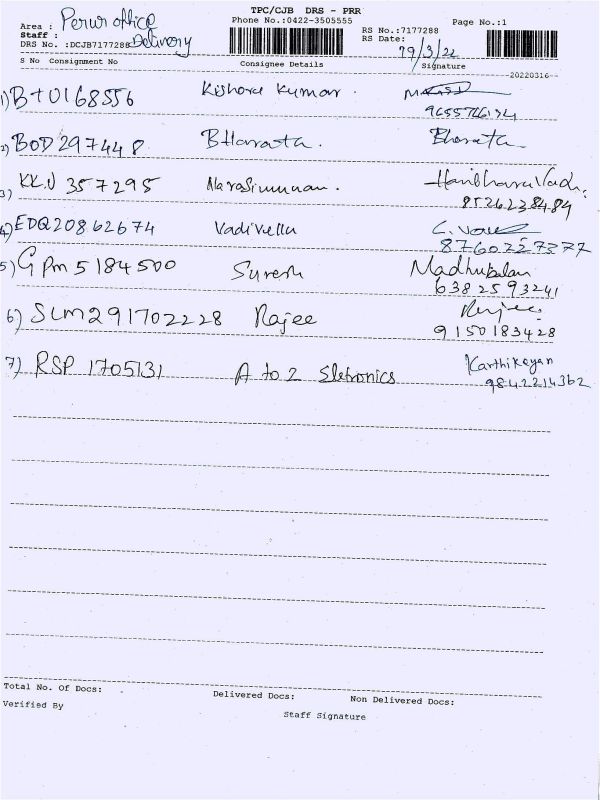 TPC/CJB DRS - PRR
Area : Perur office
Phone No.:0422-3505555
Page No.:1
Staff : Delivery
RS No.:7177288
DRS No. :DCJB7177288
RS Date: 19/3/22
S No Consignment No Consignee Details Signature
20220316
1) B+0168556 Kishore Kumar.
2) BOD297448 BHarata. Bharata.
3) KKN 357295 Narasimman. Hariharavadn.
8526238484
4) EDQ20862674 Vadivellu
8760227377
5) GPm 5184500 Suresh Madhubalan
6382593241
6) SLM291702228 Rajee Rajee.
9150183428
7) RSP 1705131 A to Z Sletronics Karthikeyan
9842214362
Total No. Of Docs: Delivered Docs: Non Delivered Docs:
Verified By Staff Signature